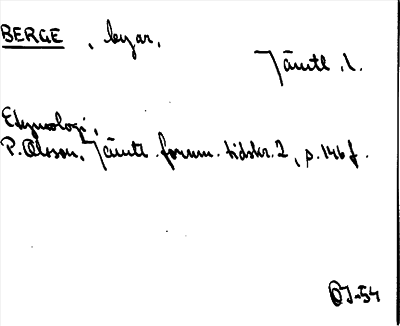 BERGE , byar.
Jämtl. l.
Etymologi,
P. Olsson, Jämtl. fornm. tidskr. 2, s. 146 f.
OJ-54